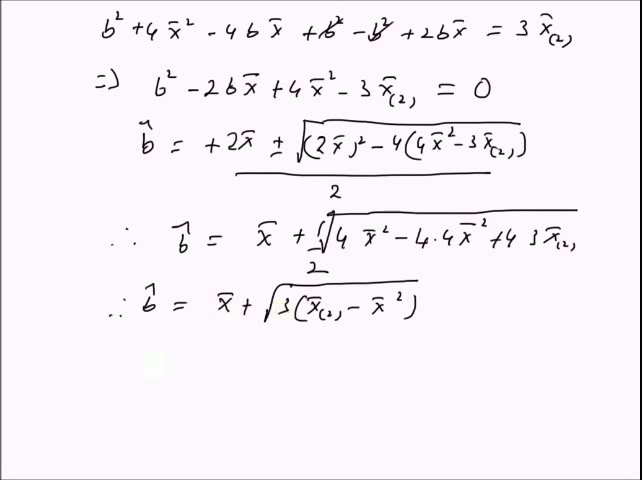 b² + 4x̄² - 4bx̄ + b² - b² + 2bx̄ = 3x̄₍₂₎
=) b² - 2bx̄ + 4x̄² - 3x̄₍₂₎ = 0
b̂ = +2x̄ ± √((2x̄)² - 4(4x̄² - 3x̄₍₂₎)) / 2
∴ b̂ = x̄ + ½√(4x̄² - 4·4x̄² + 4 3x̄₍₂₎)
∴ b̂ = x̄ + √(3(x̄₍₂₎ - x̄²))